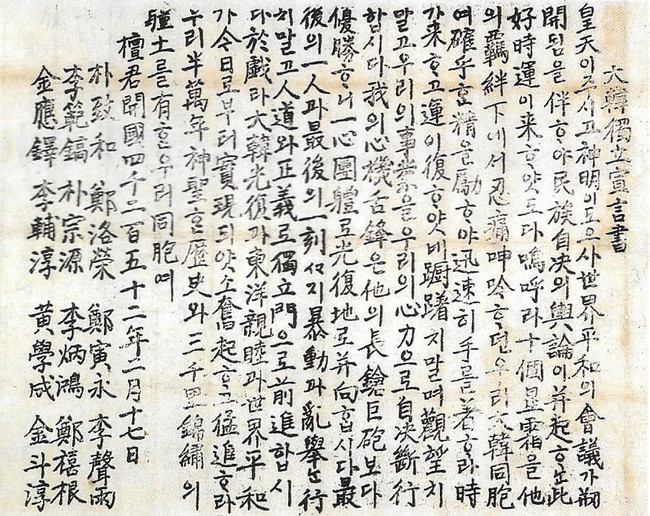 大韓獨立宣言書
皇天이주시고神明의도으사世界平和의會議가刱
開됨을伴ᄒᆞ야民族自決의輿論이幷起ᄒᆞᄂᆞᆫ此
好時運이來ᄒᆞ얏도다嗚呼라十個星霜을他
의羈絆下에서忍痛呻吟ᄒᆞ던우리大韓同胞
여確乎ᄒᆞᆫ精을勵ᄒᆞ야迅速히手를着ᄒᆞ라時
가來ᄒᆞ고運이復ᄒᆞ얏네躊躇치말며觀望치
말고우리의事業을우리의心力으로自決斷行
합시다我의心機舌鋒은他의長鎗巨砲보다
優勝ᄒᆞ니一心團體로光復地로幷向합시다最
後의一人과最後의一刻ᄭᆞ지暴動과亂擧ᄂᆞᆫ行
치말고人道와正義로獨立門으로前進합시
다於戲라大韓光復과東洋親睦과世界平和
가今日로부터實現되얏소奮起ᄒᆞ고猛進ᄒᆞ라
우리半萬年神聖ᄒᆞᆫ歷史와三千里錦繡의
疆土를有ᄒᆞᆫ우리同胞여
檀君開國四千二百五十二年一月十七日
朴致和 鄭洛榮 鄭寅永 李聲雨
李範鎬 朴宗源 李炳鴻 鄭禧根
金應鐸 李輔淳 黃學成 金斗淳